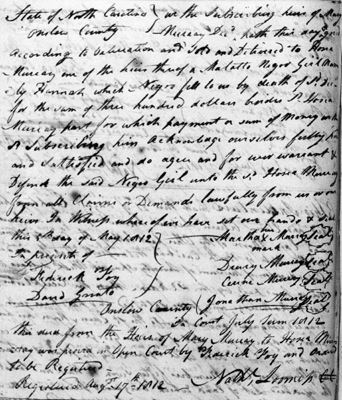 State of North Carolina } We the Subscribing heirs of Mary
Onslow County } Murray Dec'd. hath this day agreed
According to Valuation and Sold and Delivered to Hosea
Murray one of the heirs thereof a Malatto Negro Girl Name
by Hannah which Negro fell to us by death of Sd. Dec'd
for the sum of three hundred dollars Sd. Hosea
Murray for which payment or sum of Money we the
Sd. Subscribing heirs acknowledge ourselves fully paid
and Sattisfied and do agree and for ever warrant &
Defend the said Negro Girl unto the Sd. Hosea Murray
from all Claims or Demands lawfully from us or our
heirs. In Witness whereof we have set our hands & Seal
this day of May 1812
In presents of Martha X Murray Seal
her mark
Frederick Foy Murray Seal
David Murray Seal
Jonathan Murray Seal
Onslow County } In Court July Term 1812
this was from the Heirs of Mary Murray to Hosea Murray
was proven in Open Court by Frederick Foy and Ordered
to be Registered
Registered Augt. 17th. 1812 Nathl.